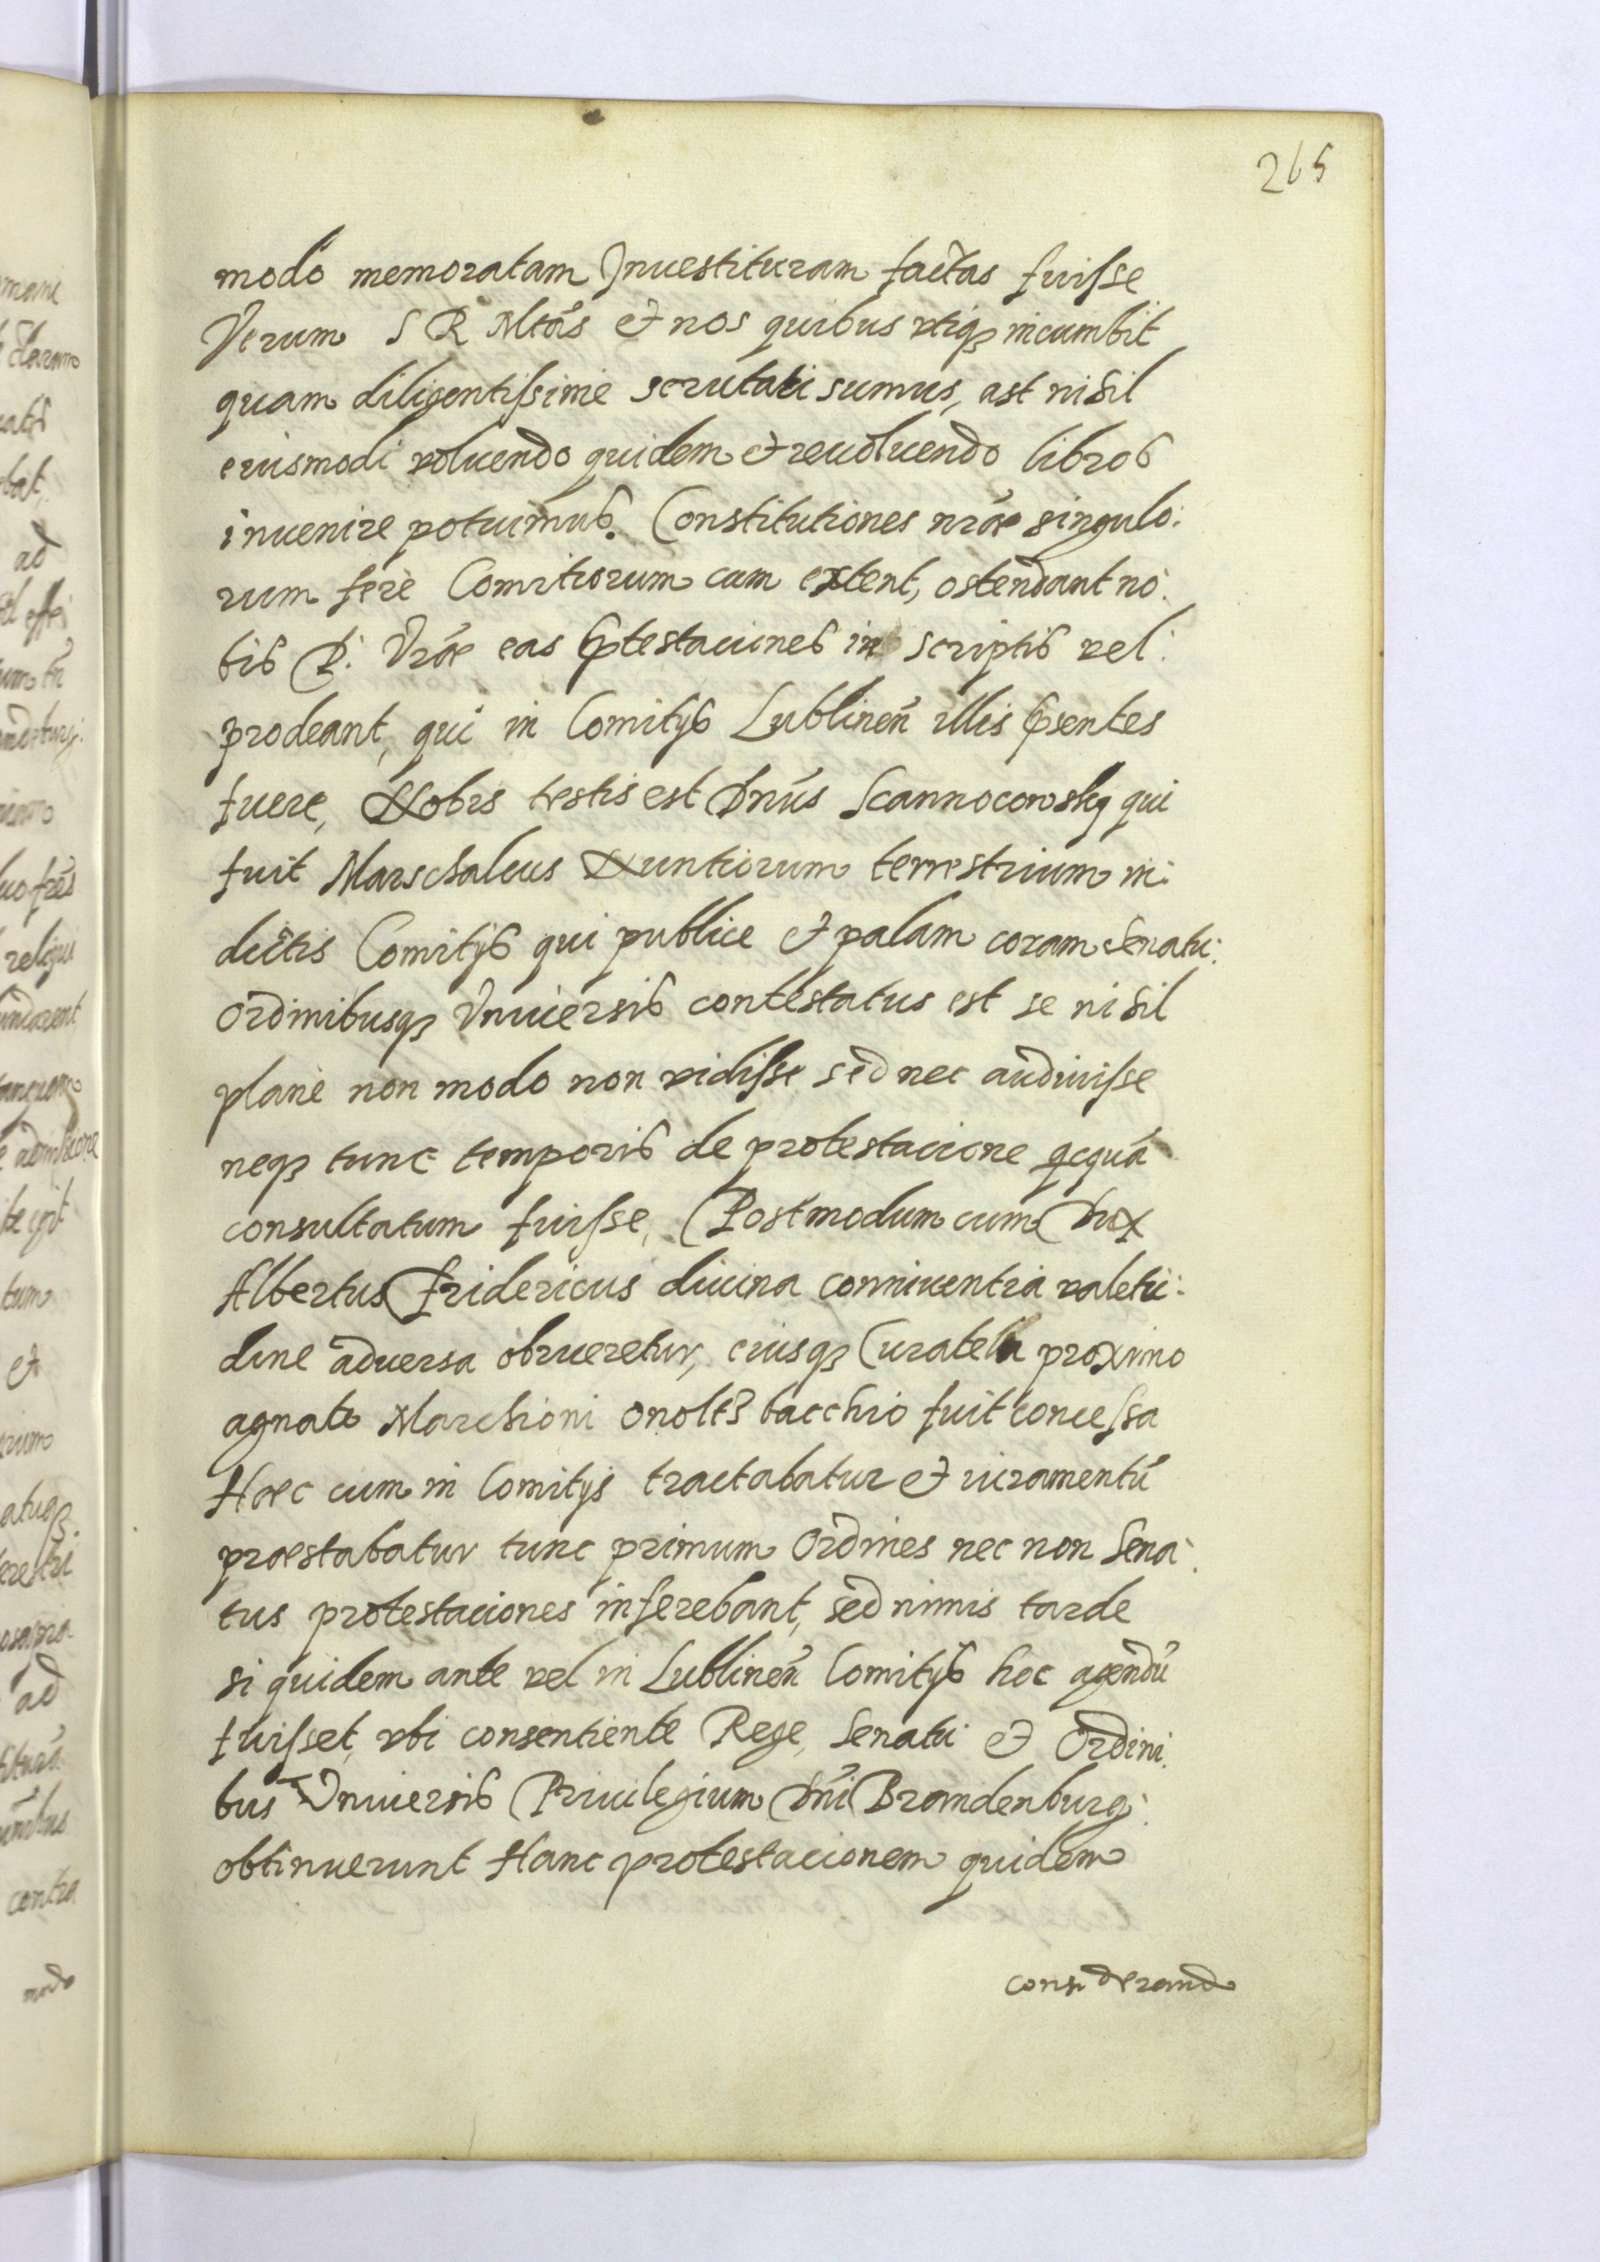 265
modo memoratam Inuestituram factas fuisse
Verum S R Mtas et nos quibus vtiq incumbit
quam diligentissime scrutati sumus, ast nihil
eiusmodi voluendo quidem et reuoluendo libros
inuenire potuimus. Constitutiones nrae singulo:
rum fere Comitiorum cum extent, ostendant no:
bis D: Vrae eas Protestaciones in scriptis vel:
prodeant, qui in Comitijs Lublinen illis praesentes
fuere, Nobis testis est Dnus Scannocowsky qui
fuit Marschalcus Nuntiorum terrestrium in:
dictis Comitijs qui publice et palam coram Senatu:
Ordinibusq Vniuersis contestatus est se nihil
plane non modo non vidisse sed nec audiuisse
neq tunc temporis de protestacione qcquã
consultatum fuisse, Postmodum cum Dux
Albertus Fridericus diuina conniuentia valetu:
dine aduersa obrueretur, eiusq Curatela proximo
agnato Marchioni Onoltsbacchio fuit concessa
Haec cum in Comitijs tractabatur et iuramentũ
praestabatur tunc primum Ordines nec non Sena:
tus protestaciones inferebant, sed nimis tarde
si quidem ante vel in Lublinen Comitijs hoc agendũ
fuisset, vbi consentiente Rege, Senatu et Ordini:
bus Vniuersis Priuilegium Dni Brandenburg:
obtinuerunt Hanc protestacionem quidem
considerand